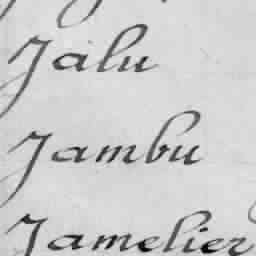 Jalu
Jambu
Jamelier